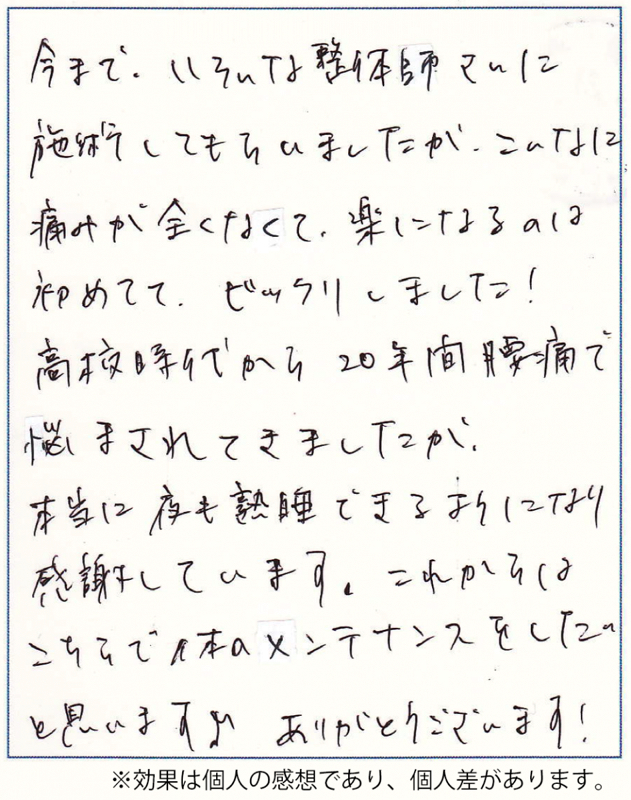 今まで、いろんな整体師さんに
施術してもらいましたが、こんなに
痛みが全くなくて、楽になるのは
初めてで、ビックリしました!
高校時代から20年間腰痛で
悩まされてきましたが、
本当に夜も熟睡できるようになり
感謝しています。これからは
こちらで体のメンテナンスをしたい
と思います♪ ありがとうございます!
※効果は個人の感想であり、個人差があります。